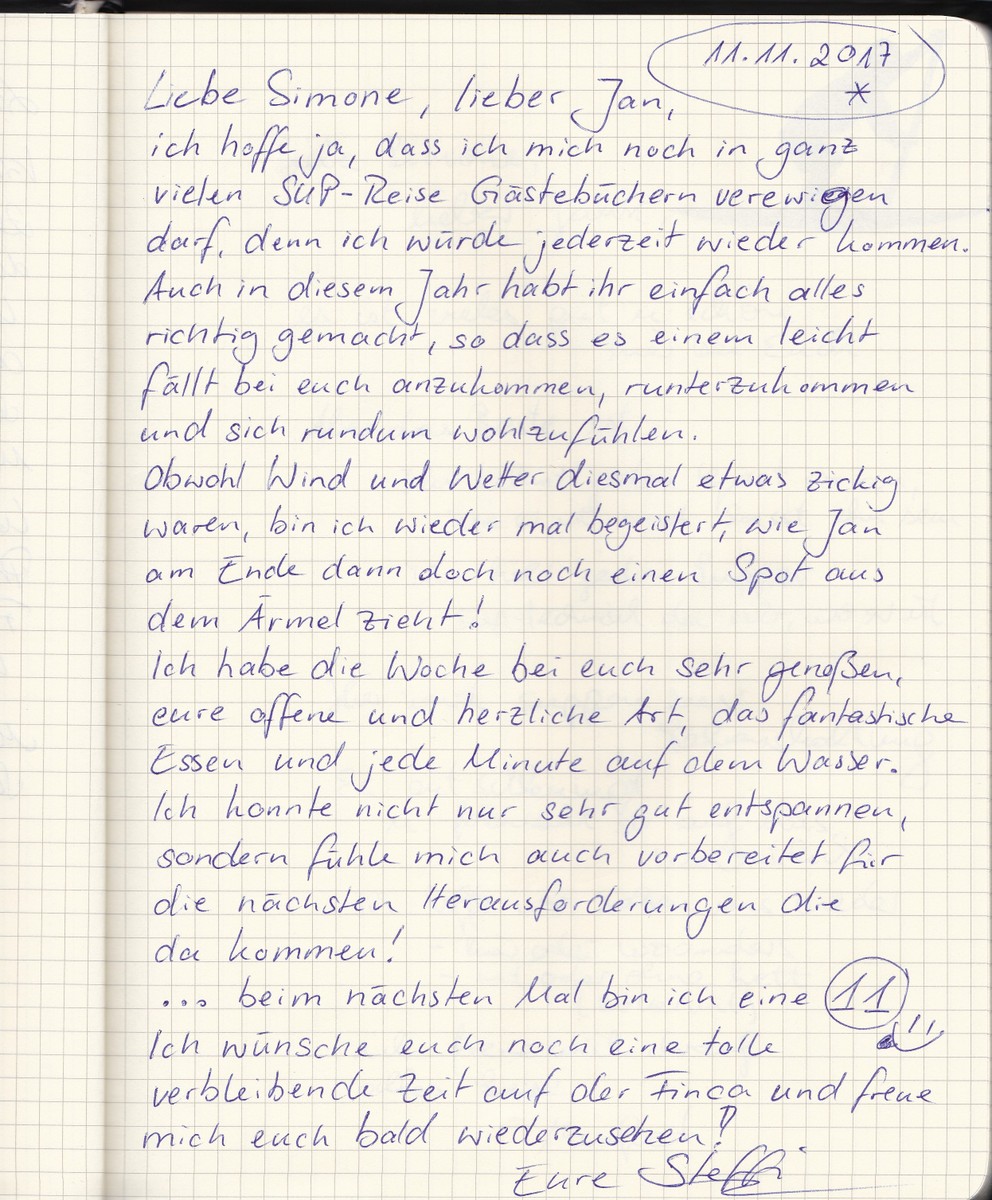 11.11.2017
Liebe Simone, lieber Jan,
ich hoffe ja, dass ich mich noch in ganz
vielen SUP-Reise Gästebüchern verewigen
darf, denn ich würde jederzeit wieder kommen.
Auch in diesem Jahr habt ihr einfach alles
richtig gemacht, so dass es einem leicht
fällt bei euch anzukommen, runterzukommen
und sich rundum wohlzufühlen.
Obwohl Wind und Wetter diesmal etwas zickig
waren, bin ich wieder mal begeistert, wie Jan
am Ende dann doch noch einen Spot aus
dem Ärmel zieht!
Ich habe die Woche bei euch sehr genoßen,
eure offene und herzliche Art, das fantastische
Essen und jede Minute auf dem Wasser.
Ich konnte nicht nur sehr gut entspannen,
sondern fühle mich auch vorbereitet für
die nächsten Herausforderungen die
da kommen!
... beim nächsten Mal bin ich eine 11
Ich wünsche euch noch eine tolle
verbleibende Zeit auf der Finca und freue
mich euch bald wiederzusehen!
Eure Steffi